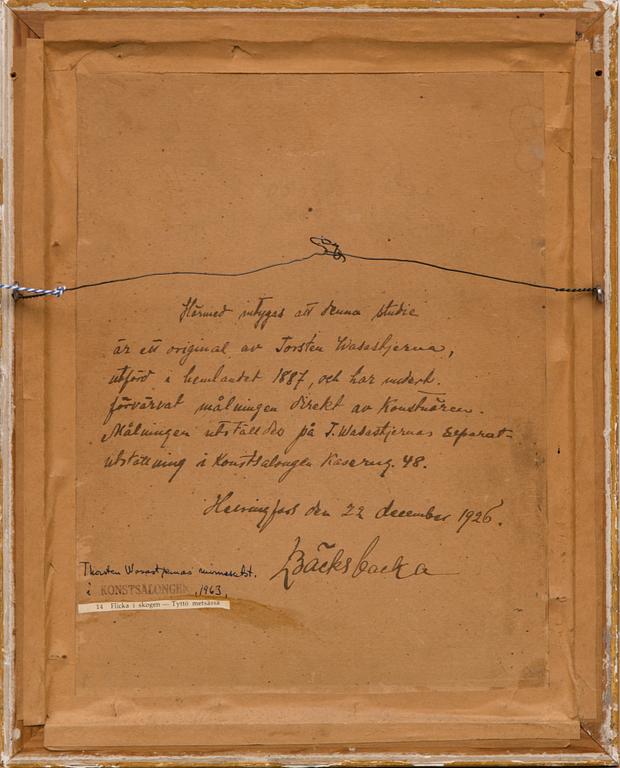 Härmed intygas att denna studie
är ett original av Torsten Wasastjerna,
utförd i hemlandet 1887, och har undert.
förvärvat målningen direkt av Konstnären.
Målningen utställdes på T. Wasastjernas Separat-
utställning i Konstsalongen Kaserng. 48.
Helsingfors den 22 december 1926.
LBäcksbacka
Thorsten Wasastjernas minnesutst.
i KONSTSALONGEN, 1963,
14 Flicka i skogen — Tyttö metsässä